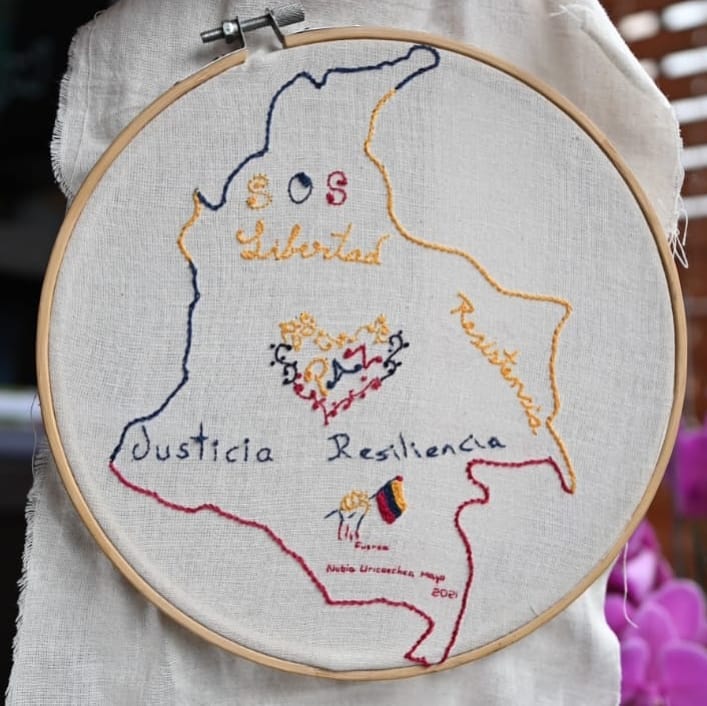 SOS
Libertad
Resistencia
PAZ
Justicia Resiliencia
Fuerza
Nubia Uricoechea Mayo
2021